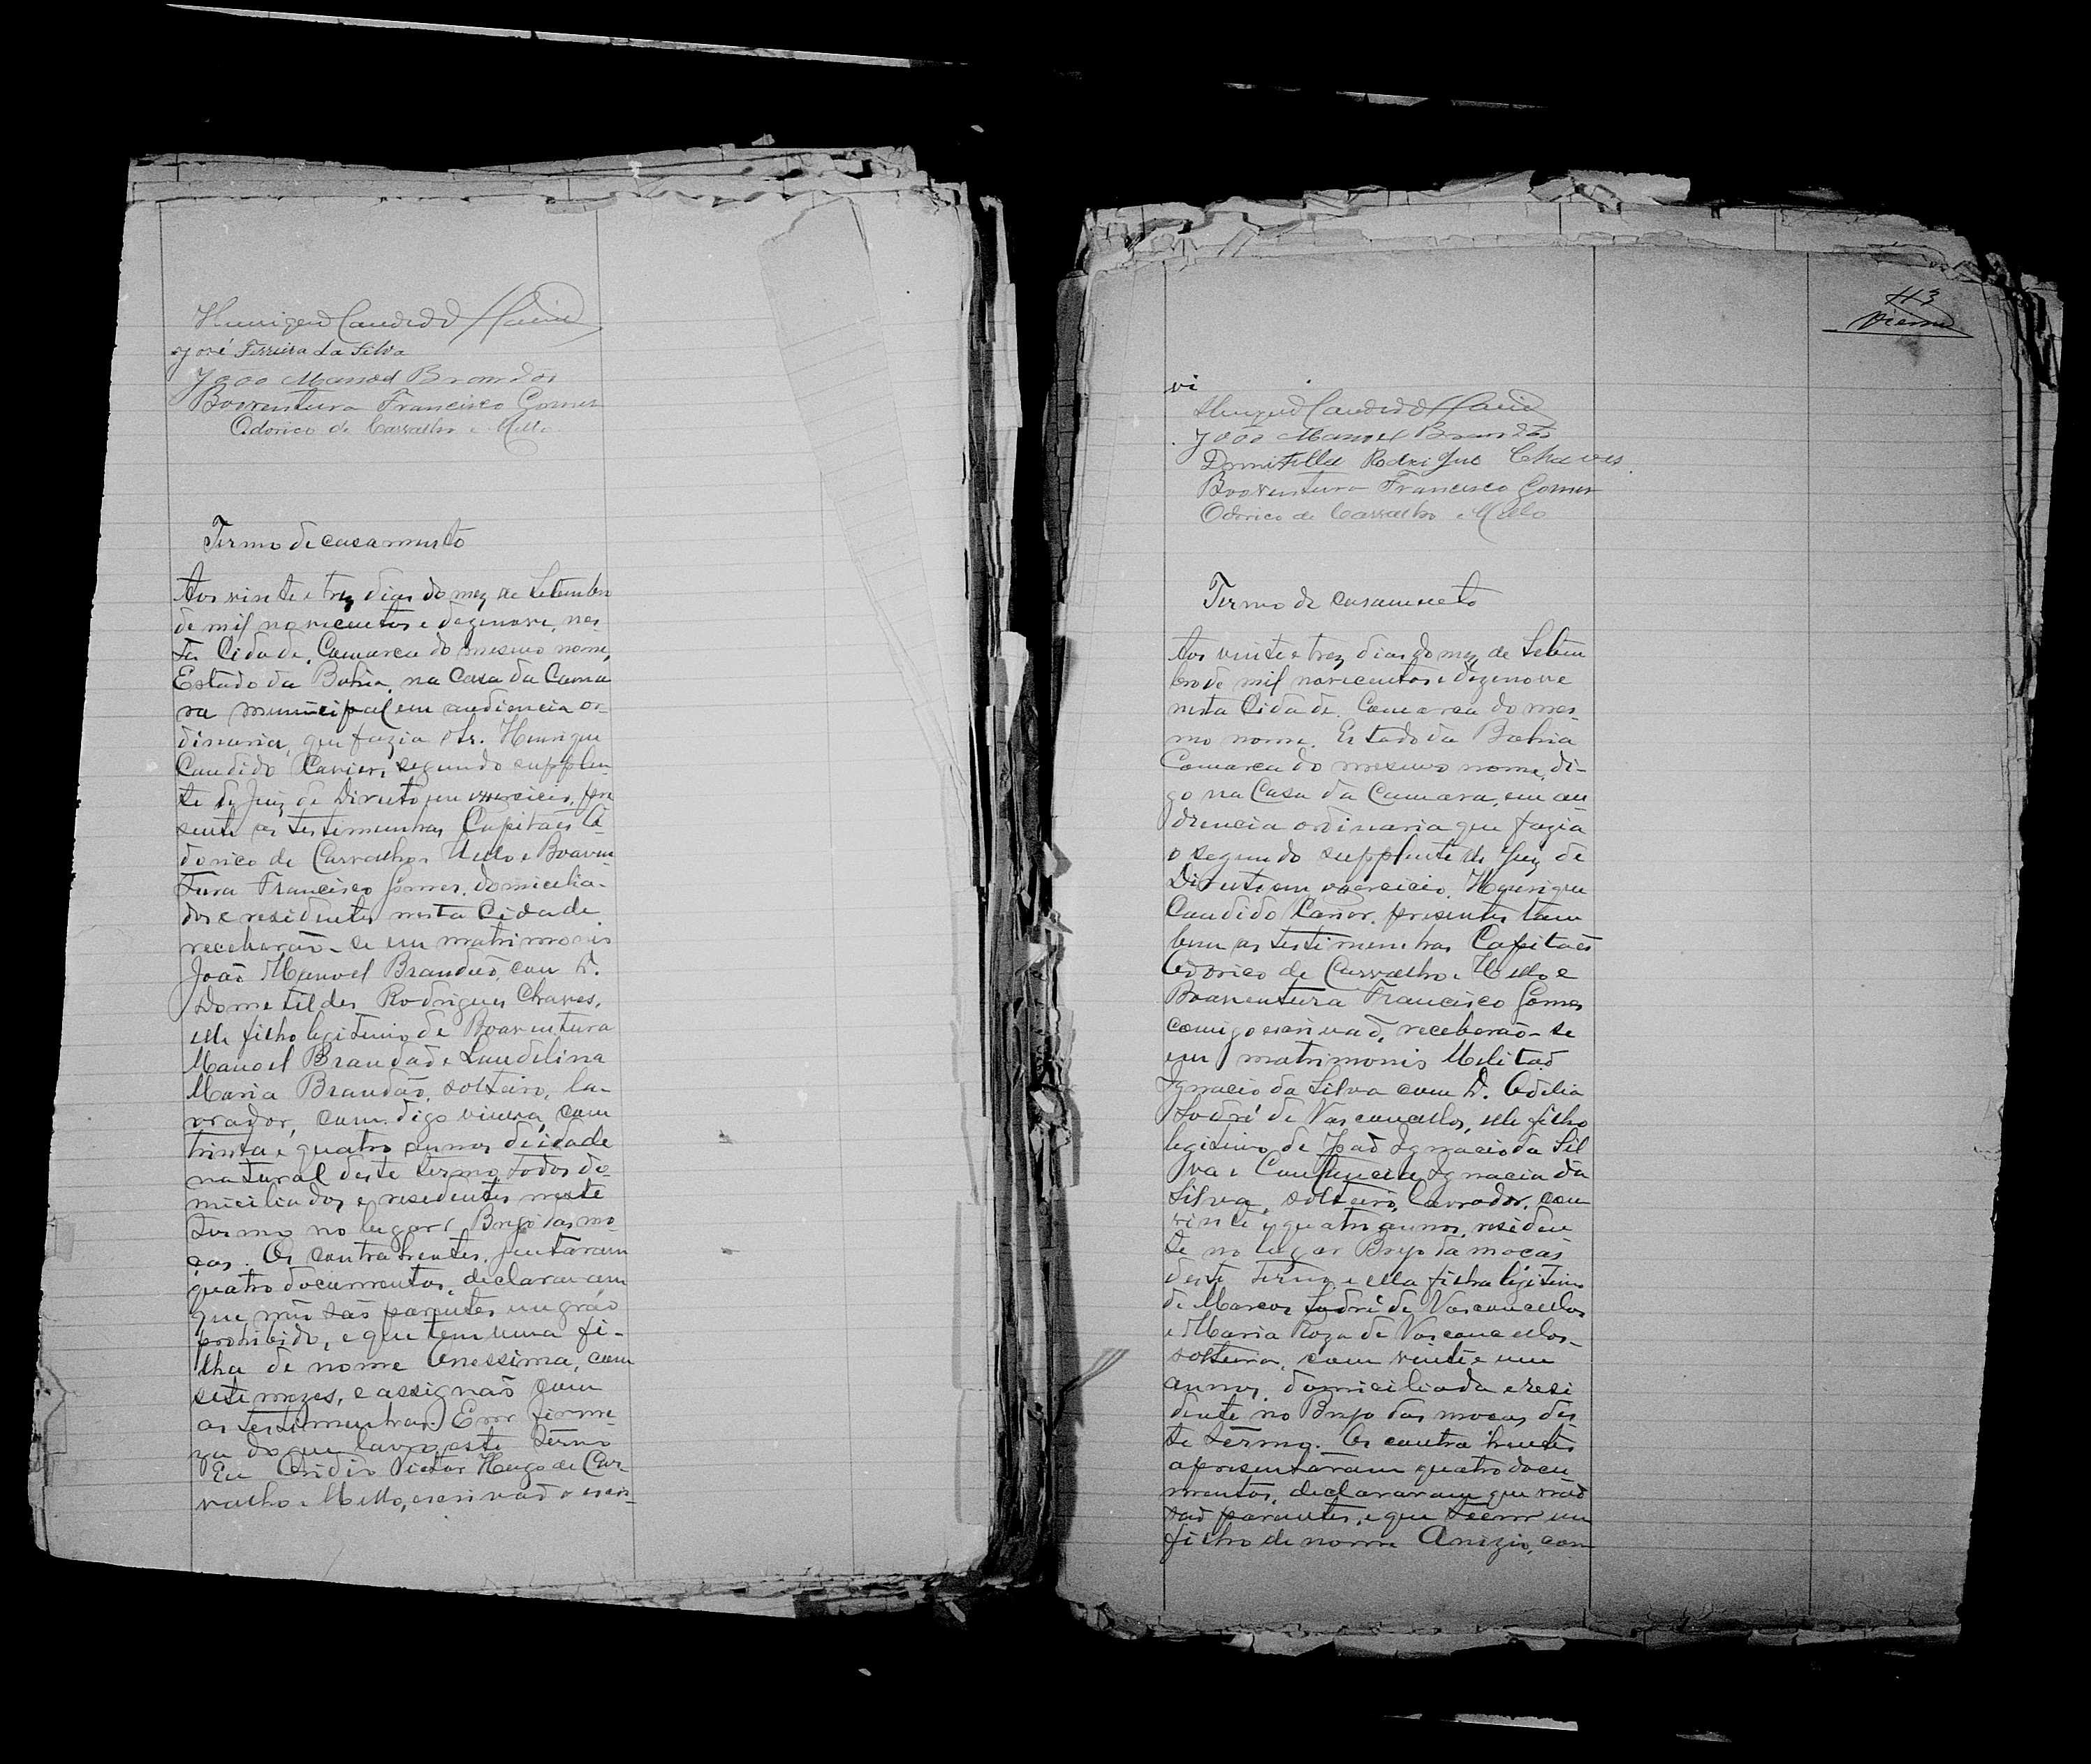 Henrique Candido Xavier
José Ferreira da Silva
João Manoel Brandão
Boaventura Francisco Gomes
Odorico de Carvalho e Mello
Termo de casamento
Aos vinte e trez dias do mez de Setembro
de mil novecentos e dezenove, nes-
ta Cidade, Comarca do mesmo nome,
Estado da Bahia, na Casa da Cama
ra municipal em audiencia or-
dinaria, que fazia o Sr. Henrique
Candido Xavier, segundo supplen-
te do Juiz de Direito em exercicio, pre
sente as testimunhas Capitães O-
dorico de Carvalho e Mello e Boaven
tura Francisco Gomes, domicilia-
dos e residentes nesta Cidade
receberão-se em matrimonio
João Manoel Brandão, com D.
Dometildes Rodrigues Chaves,
elle filho legitimo de Boaventura
Manoel Brandão e Laudelina
Maria Brandão, solteiro, la-
vrador, com digo viuva, com
trinta e quatro annos de idade
natural deste termo, todos do-
miciliados e residentes neste
termo no lugar Brejo das mo-
ças. Os contrahentes, juntaram
quatro documentos, declararam
que não são parentes em gráo
prohibido, e que tem uma fi-
lha de nome Onessima, com
sete mezes, e assignão com
as testimunhas. Em firme
za do que lavro este termo
Eu Ovidio Victor Hugo de Car-
valho e Mello, escrivão o escre-
113
vi
Henrique Candido Xavier
João Manoel Brandão
Domitilla Rodrigue Chaves
Boaventura Francisco Gomes
Odorico de Carvalho e Mello
Termo de casamento
Aos vinte e trez dias do mez de Setem
bro de mil novecentos e dezenove
nesta Cidade, Comarca do mes-
mo nome. Estado da Bahia
Comarca do mesmo nome, di-
go na Casa da Camara, em au
diencia ordinaria que fazia
o segundo supplente do Juiz de
Direito em exercicio Henrique
Candido Xavier, presentes tam
bem as testimunhas Capitães
Odorico de Carvalho e Mello e
Boaventura Francisco Gomes
comigo escrivão, receberão-se
em matrimonio Melitão
Ignacio da Silva com D. Odilia
Sodré de Vasconcellos, elle filho
legitimo de João Ignacio da Sil
va e Ignacia da
Silva, solteiro, lavrador, com
vinte e quatro annos, residen
te no lugar Brejo da moças
deste termo e ella filha legitima
de Marcos Sodré de Vasconcellos
e Maria Roza de Vasconcellos-
solteira, com vinte e um
annos, domiciliada e resi
dente no Brejo das moças des
te termo. Os contrahentes
apresentaram quatro docu
mentos, declararam que não
são parentes, e que teem um
filho de nome Anizio, com